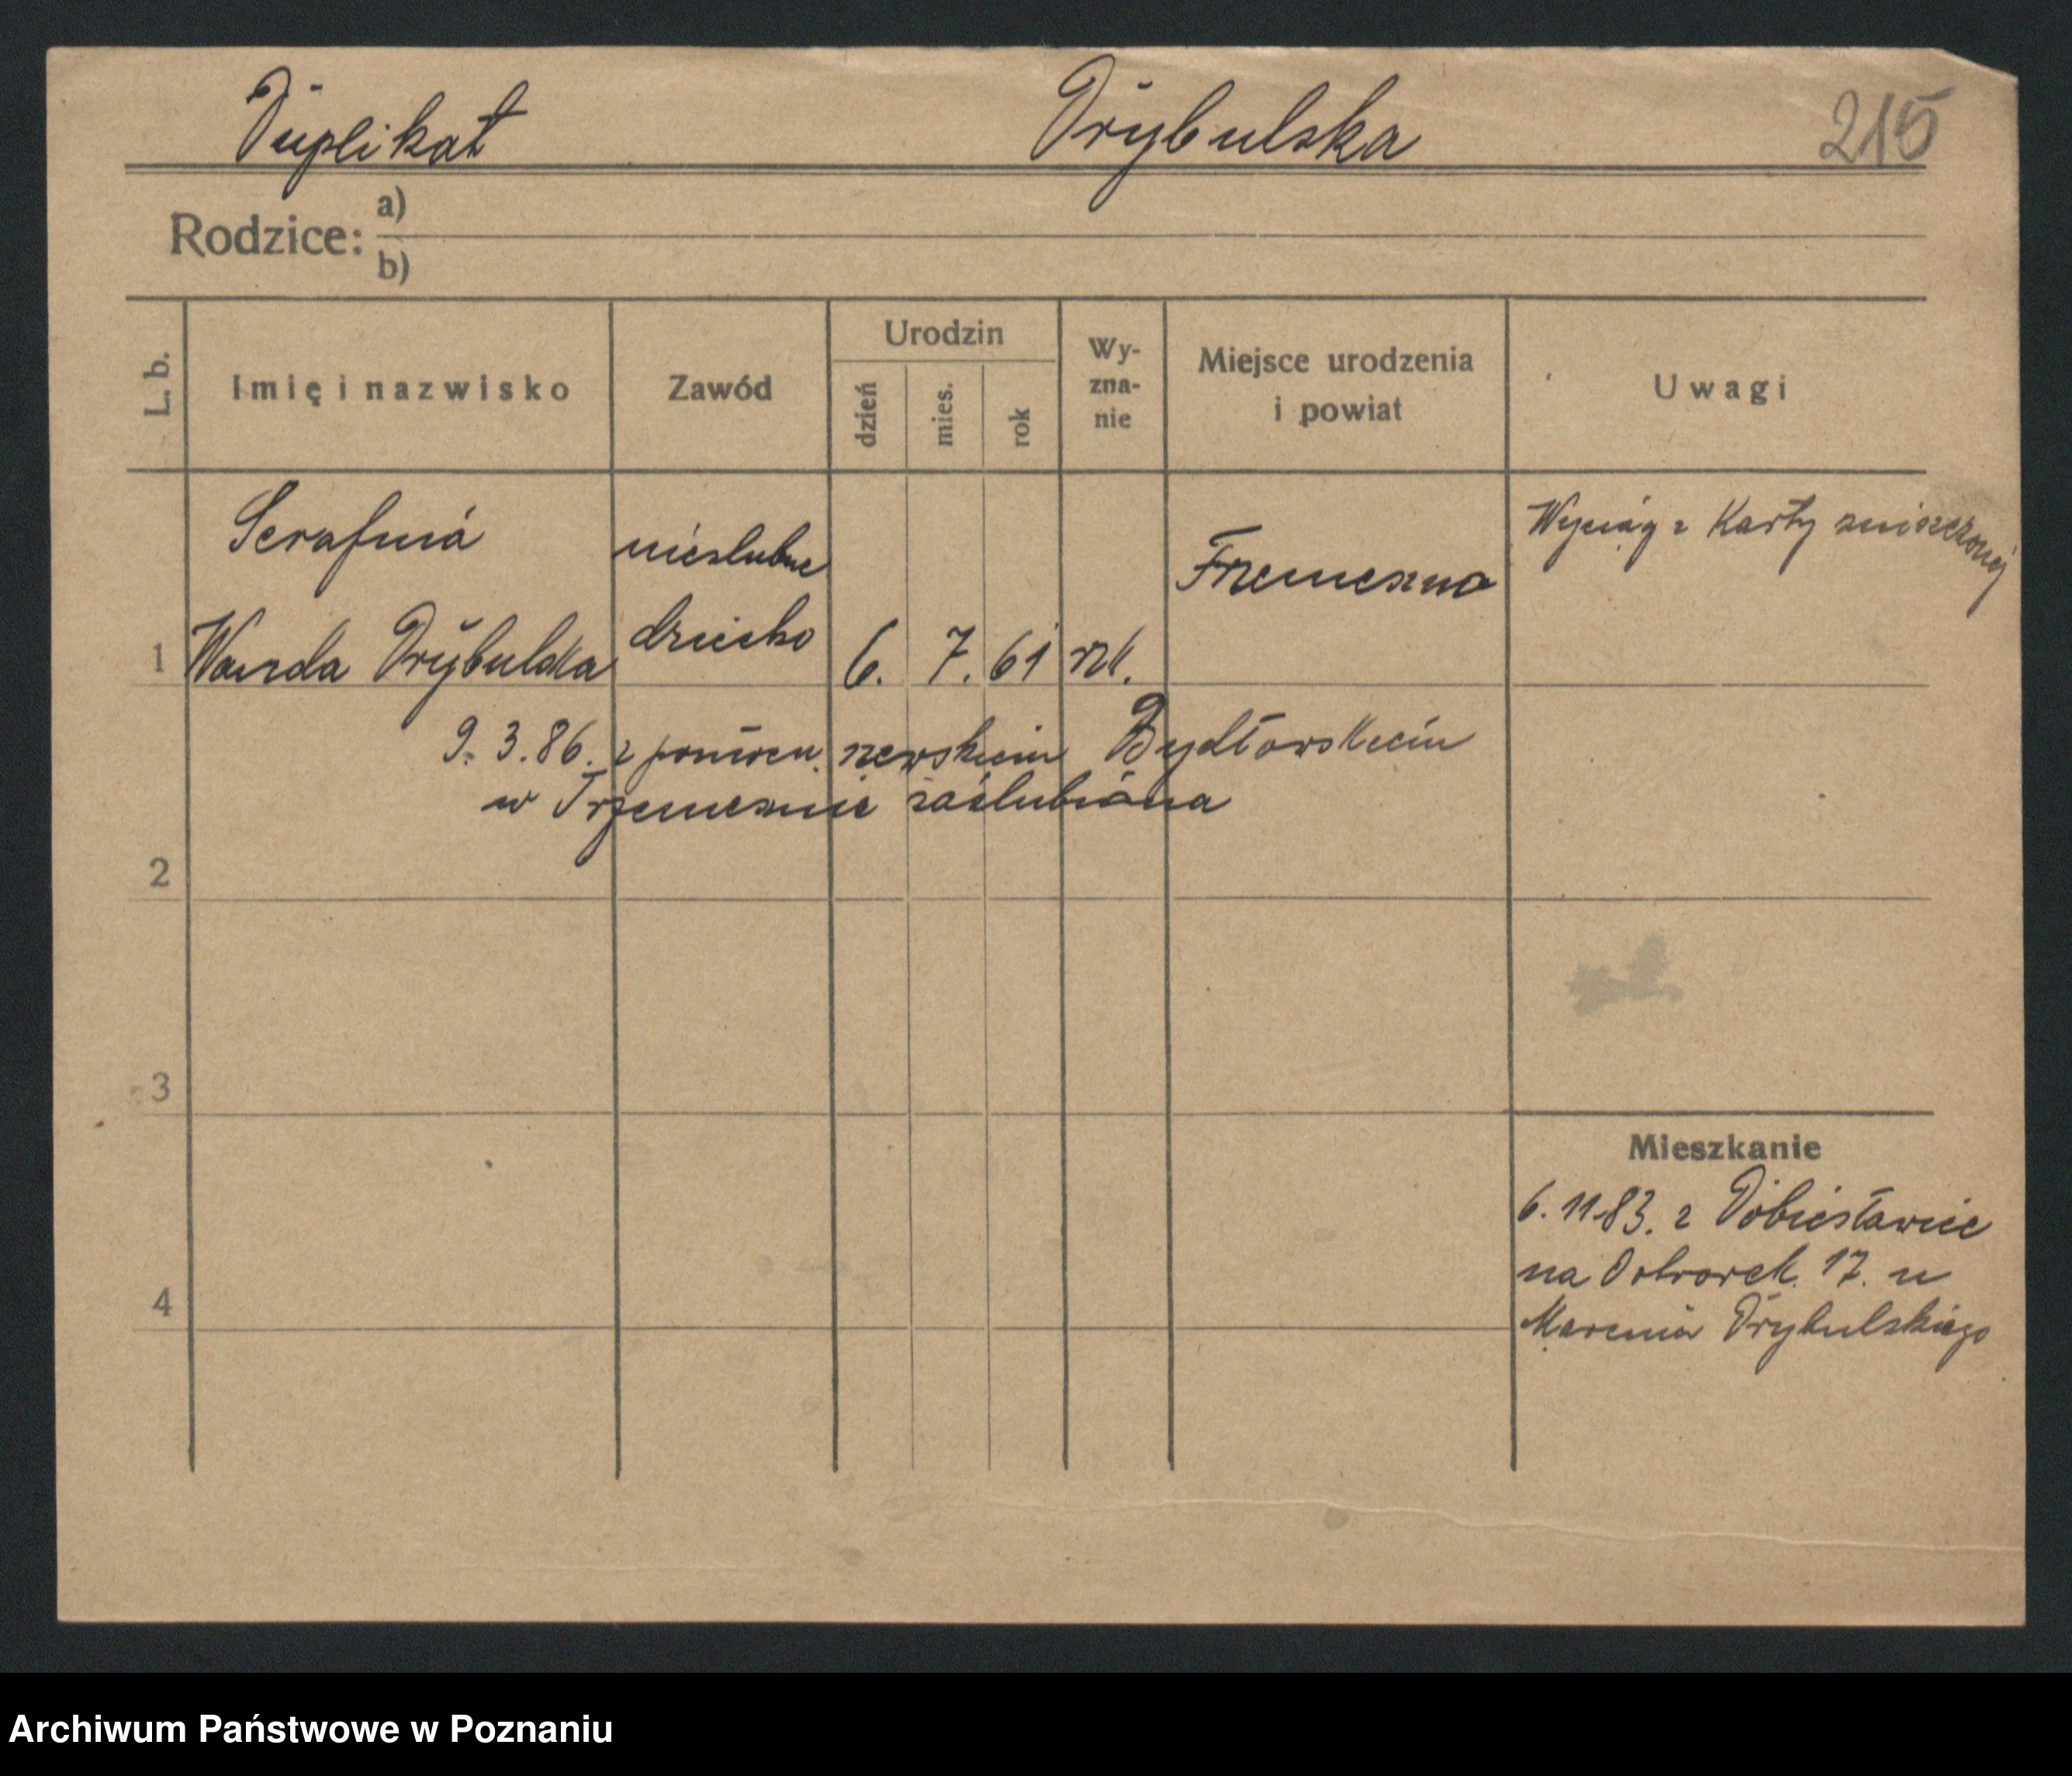 Duplikat Drybulska 215
Rodzice: a)
b)
L. b. Imię i nazwisko Zawód Urodzin dzień mies. rok Wy-zna-nie Miejsce urodzenia i powiat Uwagi
Serafina nieślubne Trzemeszno Wyciąg z Karty zniszczonej
1 Wanda Drybulska dziecko 6. 7. 61 rzk.
9. 3. 86. z pomocn. szewskiem Bydłowskiem
w Trzemesznie zaślubiona
2
3
Mieszkanie
6. 11. 83. z Dobiesławic
4 na Ostrówek. 17. u
Marcina Drybulskiego
Archiwum Państwowe w Poznaniu